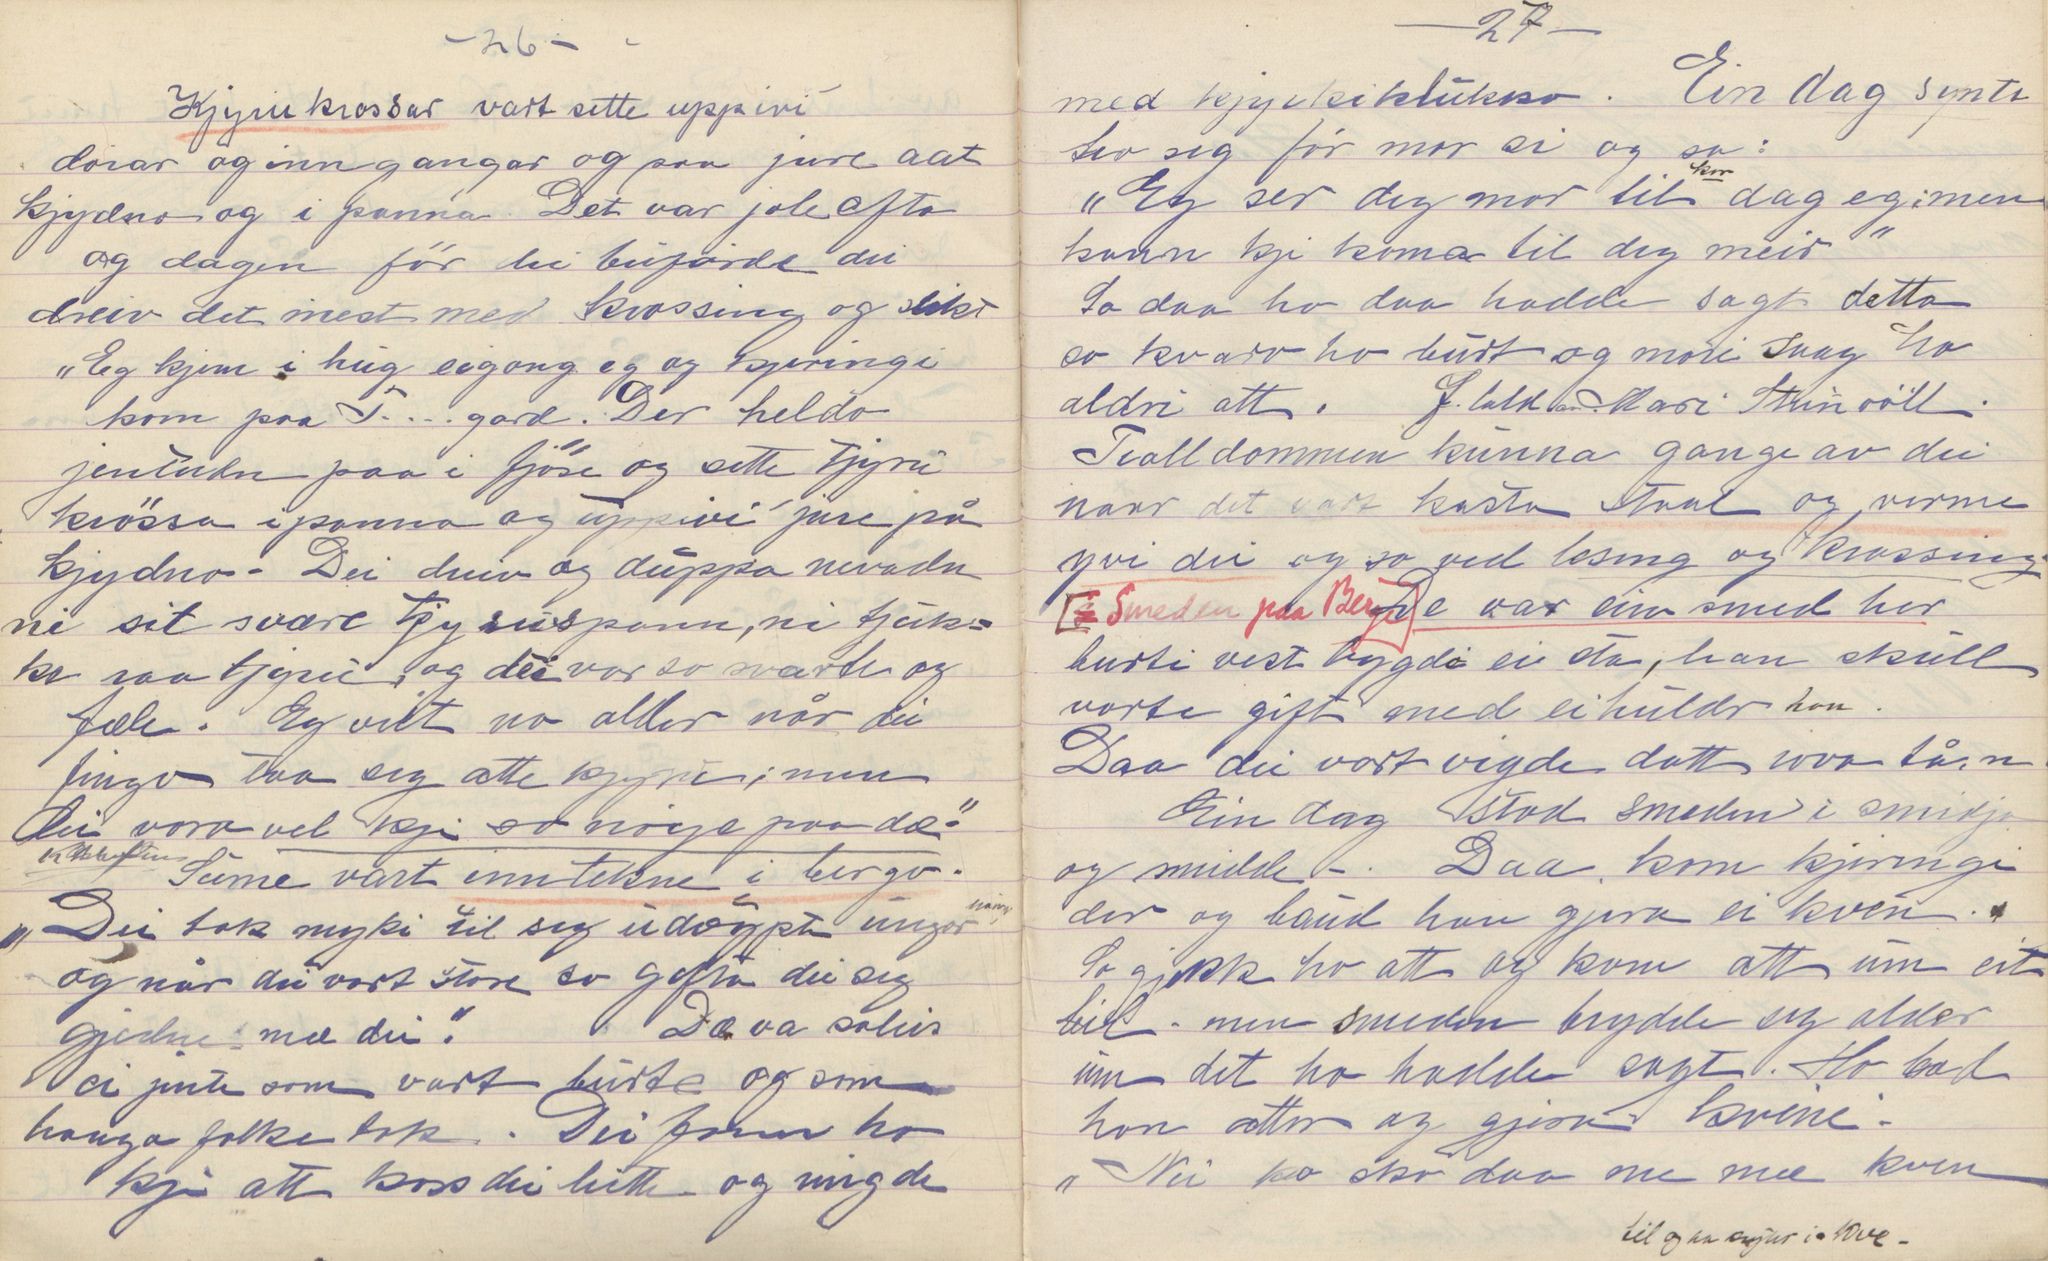 - 26 -
Kjyrukrossar vart sette uppivi
dorar og inngangar og paa jure aat
kjydno og i panna. Det var joleafta
og dagen för dei buförde dei
dreiv det mest med krossing og slikt
"Eg kjem i hug eigong eg og kjeringi
kom paa T.... gard. Der heldo
jentudn paa i fjöse og sette tjyru
krössa i panna og uppivi jure på
kjydno - Dei dreiv og duppa nevadn
ni sit svære tjyruspann, ni tjuk-
ke raa tjyru, og dei var so svarte og
fæle. Eg veit no aller når dei
fingo taa seg atte kjyru; men
dei vora vel kji so nöye paa dæ."
Sume vart inntekne i bergo.
"Dei tok myki til seg udöypte ungar
og når dei vart store so gifta dei seg
gjedne mæ dei". Dæ va soleis
ei jente som vart burte og som
hauga folke tok. Dei fann ho
kji att koss dei leitte og ringde
- 27 -
med kjyrkjeklukko. Ein dag synte
ho seg för mor si og sa:
kor
"Eg ser deg mor til dag eg; men
kann kji koma til deg meir"
So daa ho daa hadde sagt detta
so kvarv ho burt og mori saag ho
aldri att. F. lald Mari Stuvröll.
Trolldommen kunna gange av dei
naar det vart kasta staal og verme
yvi dei og so ved lesing og krossing
[Smeden paa Berge] De var ein smed her
burti vest bygdi ei sta, han skull
varte gift med ei huldr hau.
Daa dei vart vigde datt rova tå'n
Ein dag stod smeden i smidja
og smidde -. Daa kom kjeringi
der og baud han gjera ei kven.
So gjekk ho att og kom att um eit
bil - men smeden brydde seg alder
um det ho hadde sagt. Ho bad
han atter og gjera kveni.
"Nei ko sko daa me mæ kven